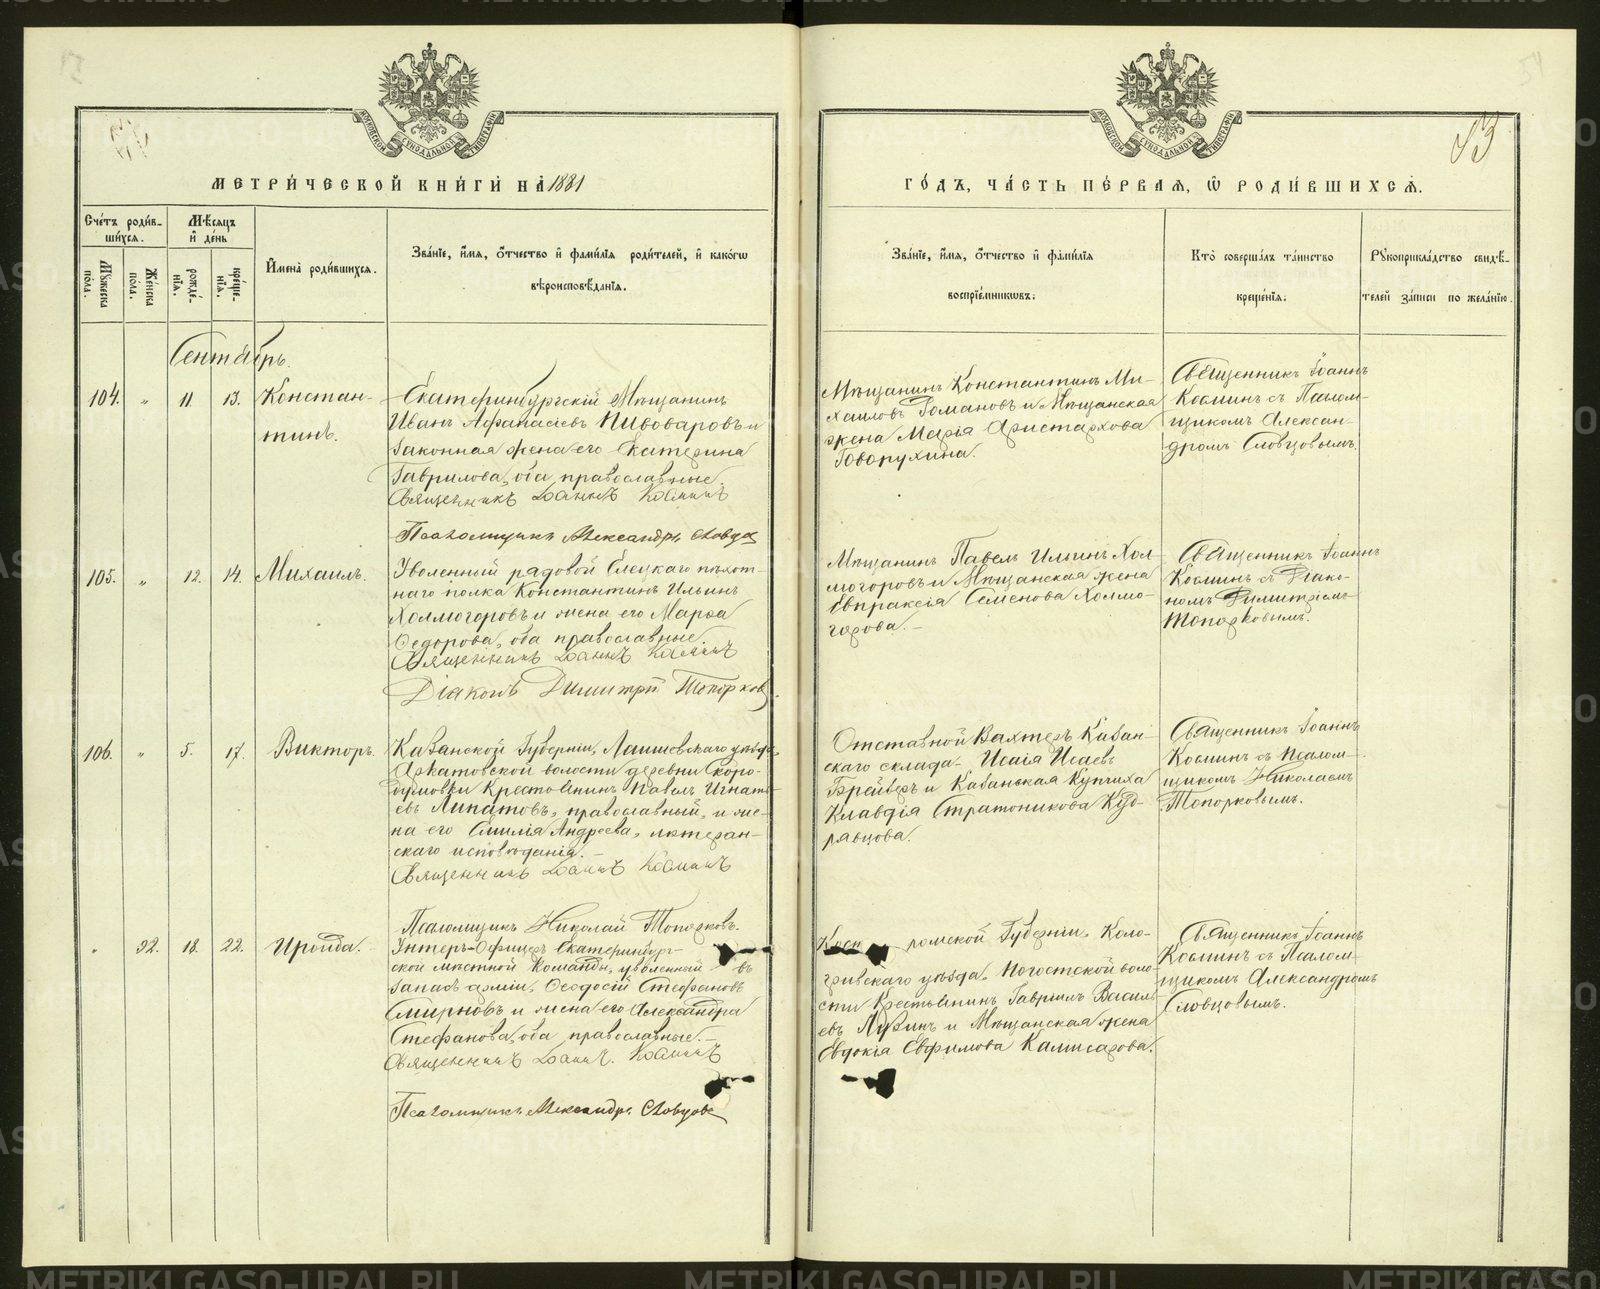 53
МЕТРИЧЕСКОЙ КНИГИ НА 1881
ГОДЪ, ЧАСТЬ ПЕРВАЯ, Ѡ РОДИВШИХСЯ.
Счетъ родив-
шихся.
Мѣсяцъ
и день
Мужеска пола.
Женска пола.
рожде-
нія.
креще-
нія.
Имена родившихся.
Званіе, имя, отчество и фамилія родителей, и какого
вѣроисповѣданія.
Званіе, имя, отчество и фамилія
воспріемниковъ.
Кто совершалъ таинство
крещенія.
Рукоприкладство свидѣ-
телей записи по желанію.
Сентябрь.
104. " 11. 13. Констан-
тинъ.
Екатеринбургскій Мѣщанинъ
Иванъ Афанасіевъ Пивоваровъ и
законная жена его Екатерина
Гаврилова, оба православные.
Священникъ Іоаннъ Косминъ
Псаломщикъ Александръ Словцов
Мѣщанинъ Константинъ Ми-
хаиловъ Романовъ и Мѣщанская
жена Марія Аристархова
Говорухина.
Священникъ Іоаннъ
Косминъ съ Псалом-
щикомъ Алексан-
дромъ Словцовымъ.
105. " 12. 14. Михаилъ.
Уволенный рядовой Елецкаго пѣхот-
наго полка Константинъ Ильинъ
Холмогоровъ и жена его Марѳа
Ѳедорова, оба православные.
Священникъ Іоаннъ Косминъ
Діаконъ Димитрій Топорков.
Мѣщанинъ Павелъ Ильинъ Хол-
могоровъ и Мѣщанская жена
Евпраксія Семенова Холмо-
горова.
Священникъ Іоаннъ
Косминъ съ Діако-
номъ Димитріемъ
Топорковымъ.
106. " 5. 17. Викторъ.
Казанской Губерніи, Лаишевскаго уѣзда
волости деревни Скоро-
Крестьянинъ Павелъ Игнать-
евъ Липатовъ, православный, и же-
на его Емилія Андреева, лютеран-
скаго исповѣданія.
Священникъ Іоаннъ Косминъ
Псаломщикъ Николай Топорковъ.
Отставной Вахтеръ Казан-
скаго склада Исаія Исаевъ
Брейверъ и Казанская Купчиха
Клавдія Стратоникова Куд-
рявцова.
Священникъ Іоаннъ
Косминъ съ Псалом-
щикомъ Николаемъ
Топорковымъ.
" 92. 18. 22. Ироида.
Унтеръ-Офицеръ Екатеринбург-
ской мѣстной Команды, уволенный въ
запасъ арміи, Ѳеодосій Стефановъ
Смирновъ и жена его Александра
Стефанова, оба православные.
Священникъ Іоаннъ Косминъ
Псаломщикъ Александръ Словцовъ
ромской Губерніи, Коло-
гривскаго уѣзда, Погостской воло-
сти Крестьянинъ Гавріилъ Василь-
евъ и Мѣщанская жена
Евдокія Евфимова Камисарова.
Священникъ Іоаннъ
Косминъ съ Псалом-
щикомъ Александромъ
Словцовымъ.
METRIKI.GASO-URAL.RU